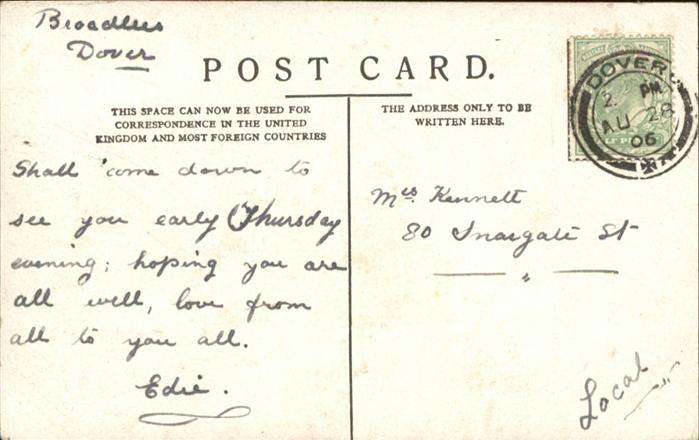 Broadlees
Dover
POST CARD.
THIS SPACE CAN NOW BE USED FOR
CORRESPONDENCE IN THE UNITED
KINGDOM AND MOST FOREIGN COUNTRIES
THE ADDRESS ONLY TO BE
WRITTEN HERE.
DOVER
2. PM
AU 28
06
Shall come down to
see you early Thursday
evening; hoping you are
all well, love from
all to you all.
Edie.
Mrs Kennett
80 Snargate St
Local